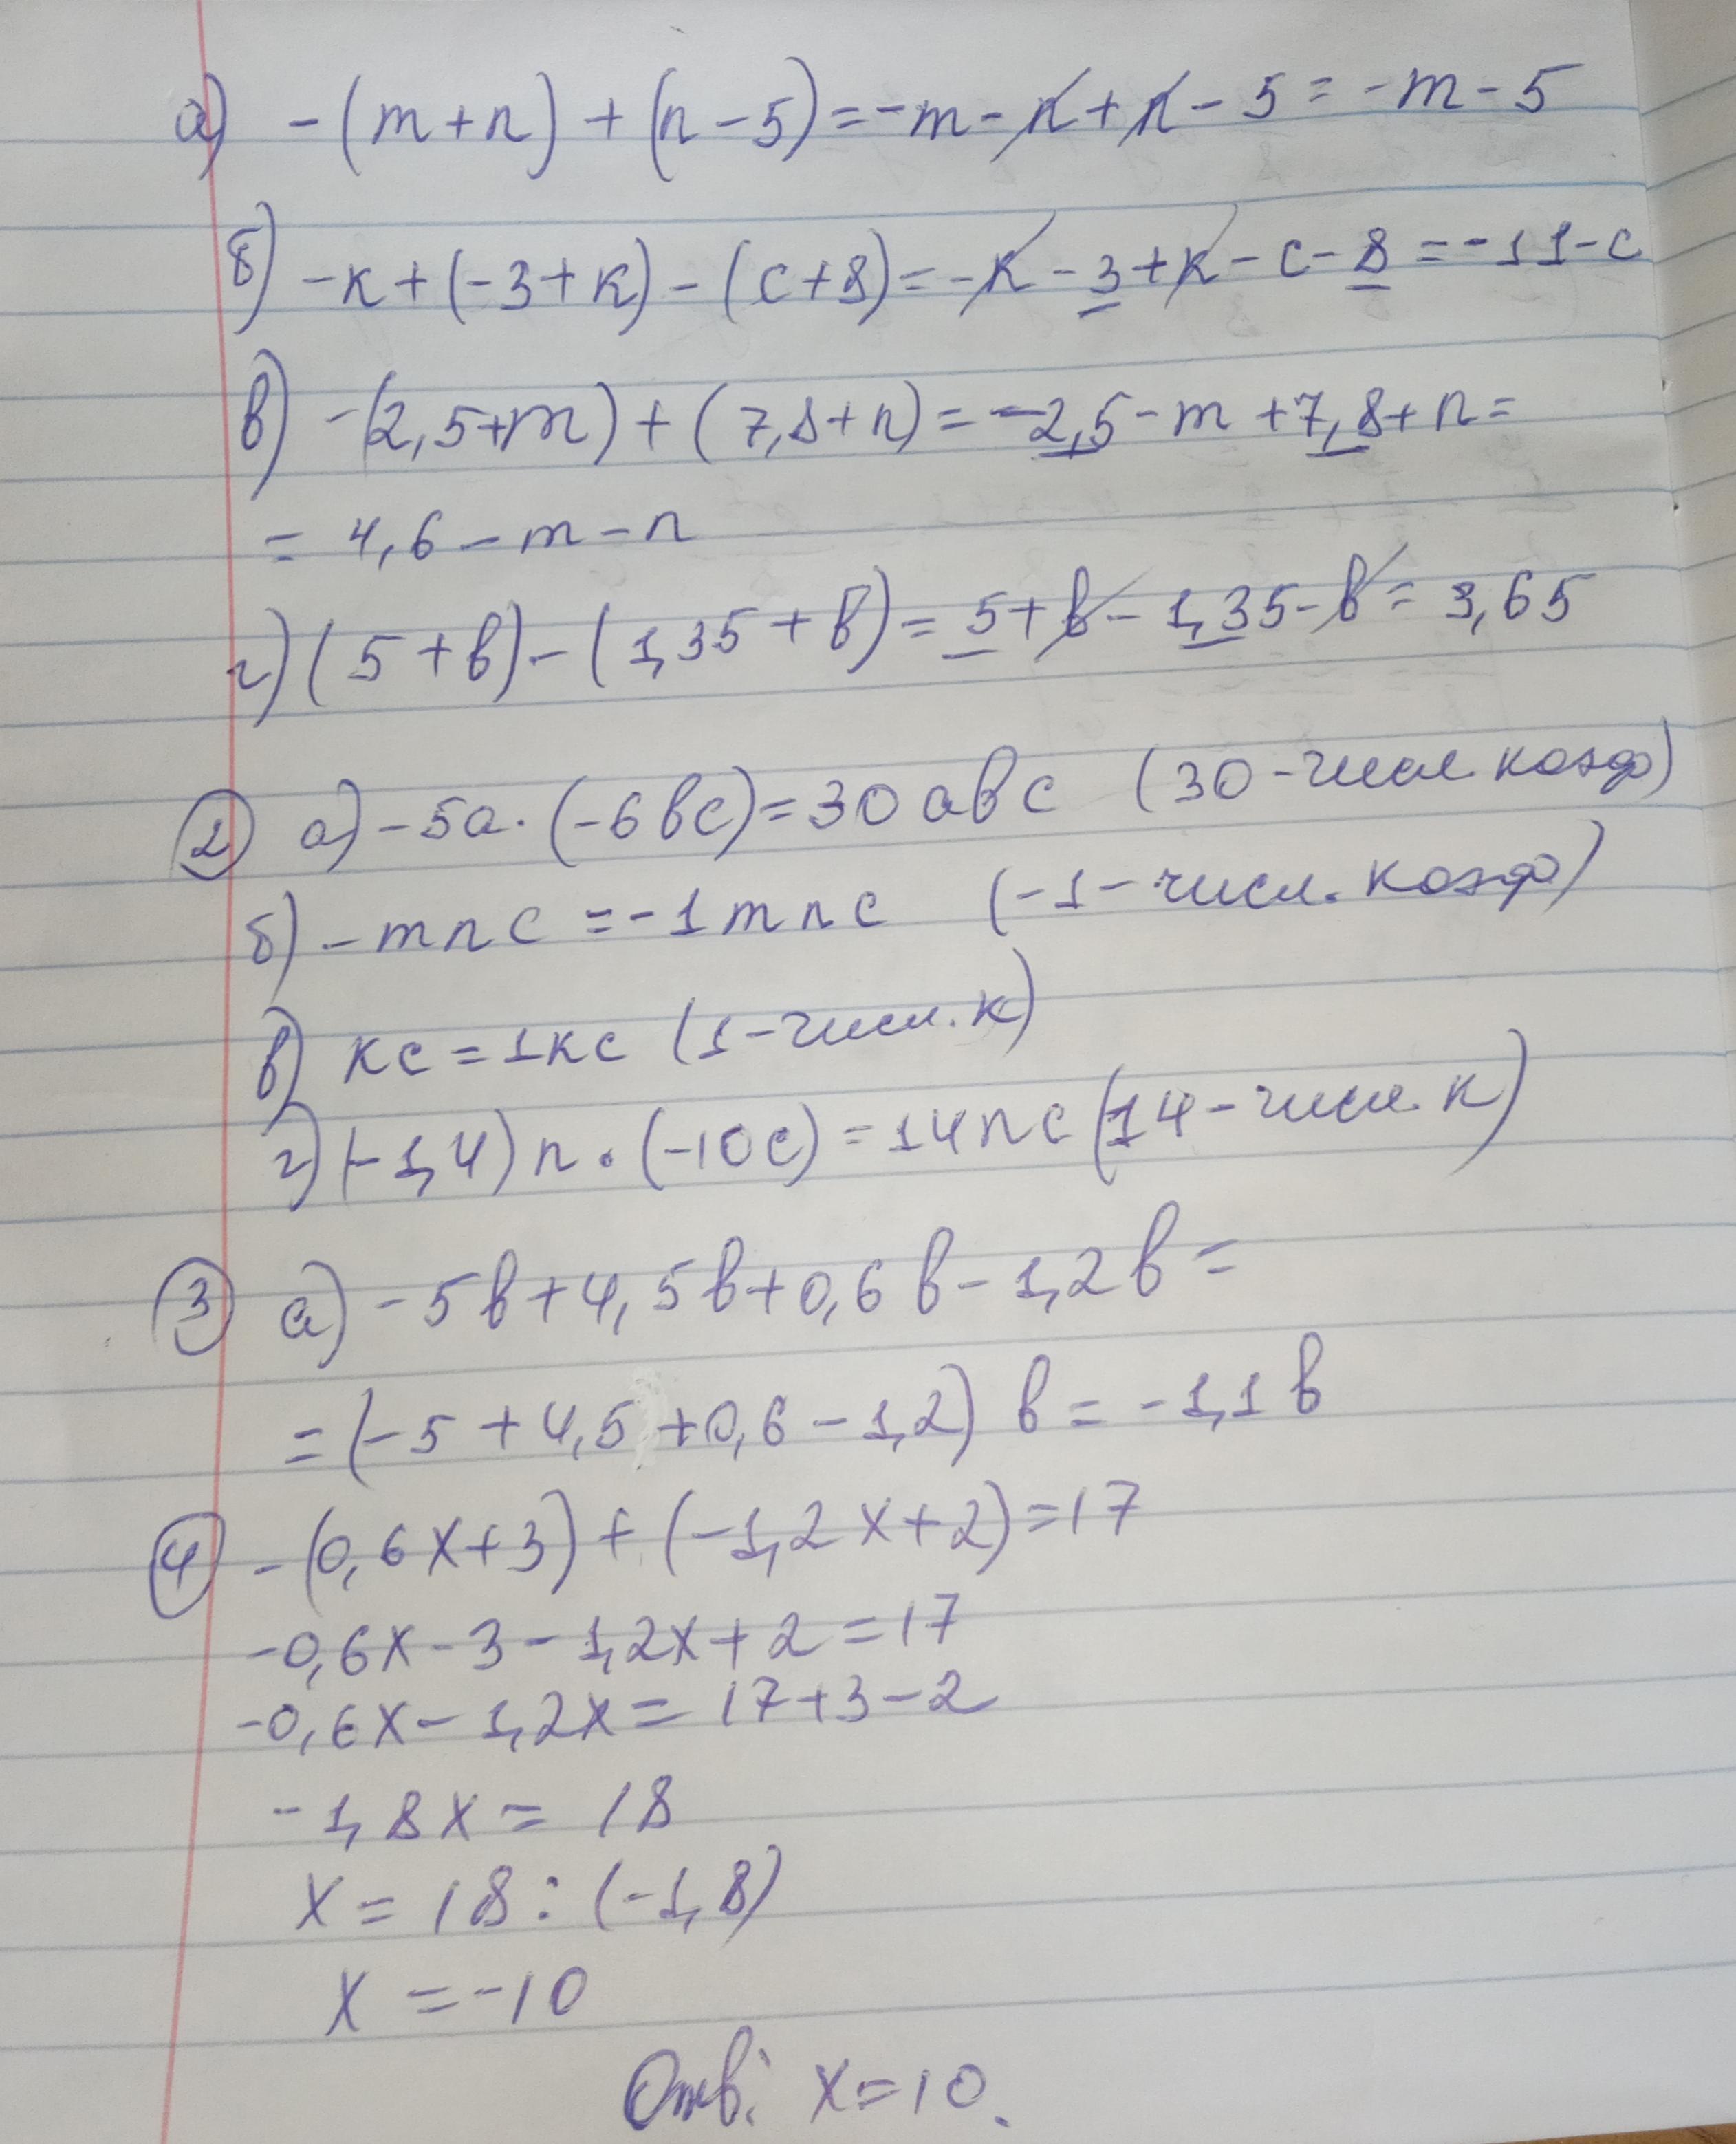 а) -(m+n)+(n-5)=-m-n+n-5=-m-5
б) -к+(-3+к)-(с+8)=-к-3+к-с-8=-11-с
в) -(2,5+m)+(7,8+n)=-2,5-m+7,8+n=
= 4,6-m-n
г) (5+в)-(1,35+в)=5+в-1,35-в=3,65
2 а) -5а·(-6вс)=30авс (30-числ коэф)
б) -mnc=-1mnc (-1-числ. коэф)
в) кс=1кс (1-числ. к)
г) (-1,4)n·(-10с)=14nc (14-числ. к)
3 а) -5в+4,5в+0,6в-1,2в=
=(-5+4,5+0,6-1,2)в=-1,1в
4 -(0,6х+3)+(-1,2х+2)=17
-0,6х-3-1,2х+2=17
-0,6х-1,2х=17+3-2
-1,8х=18
х=18:(-1,8)
х=-10
Отв: х=10.